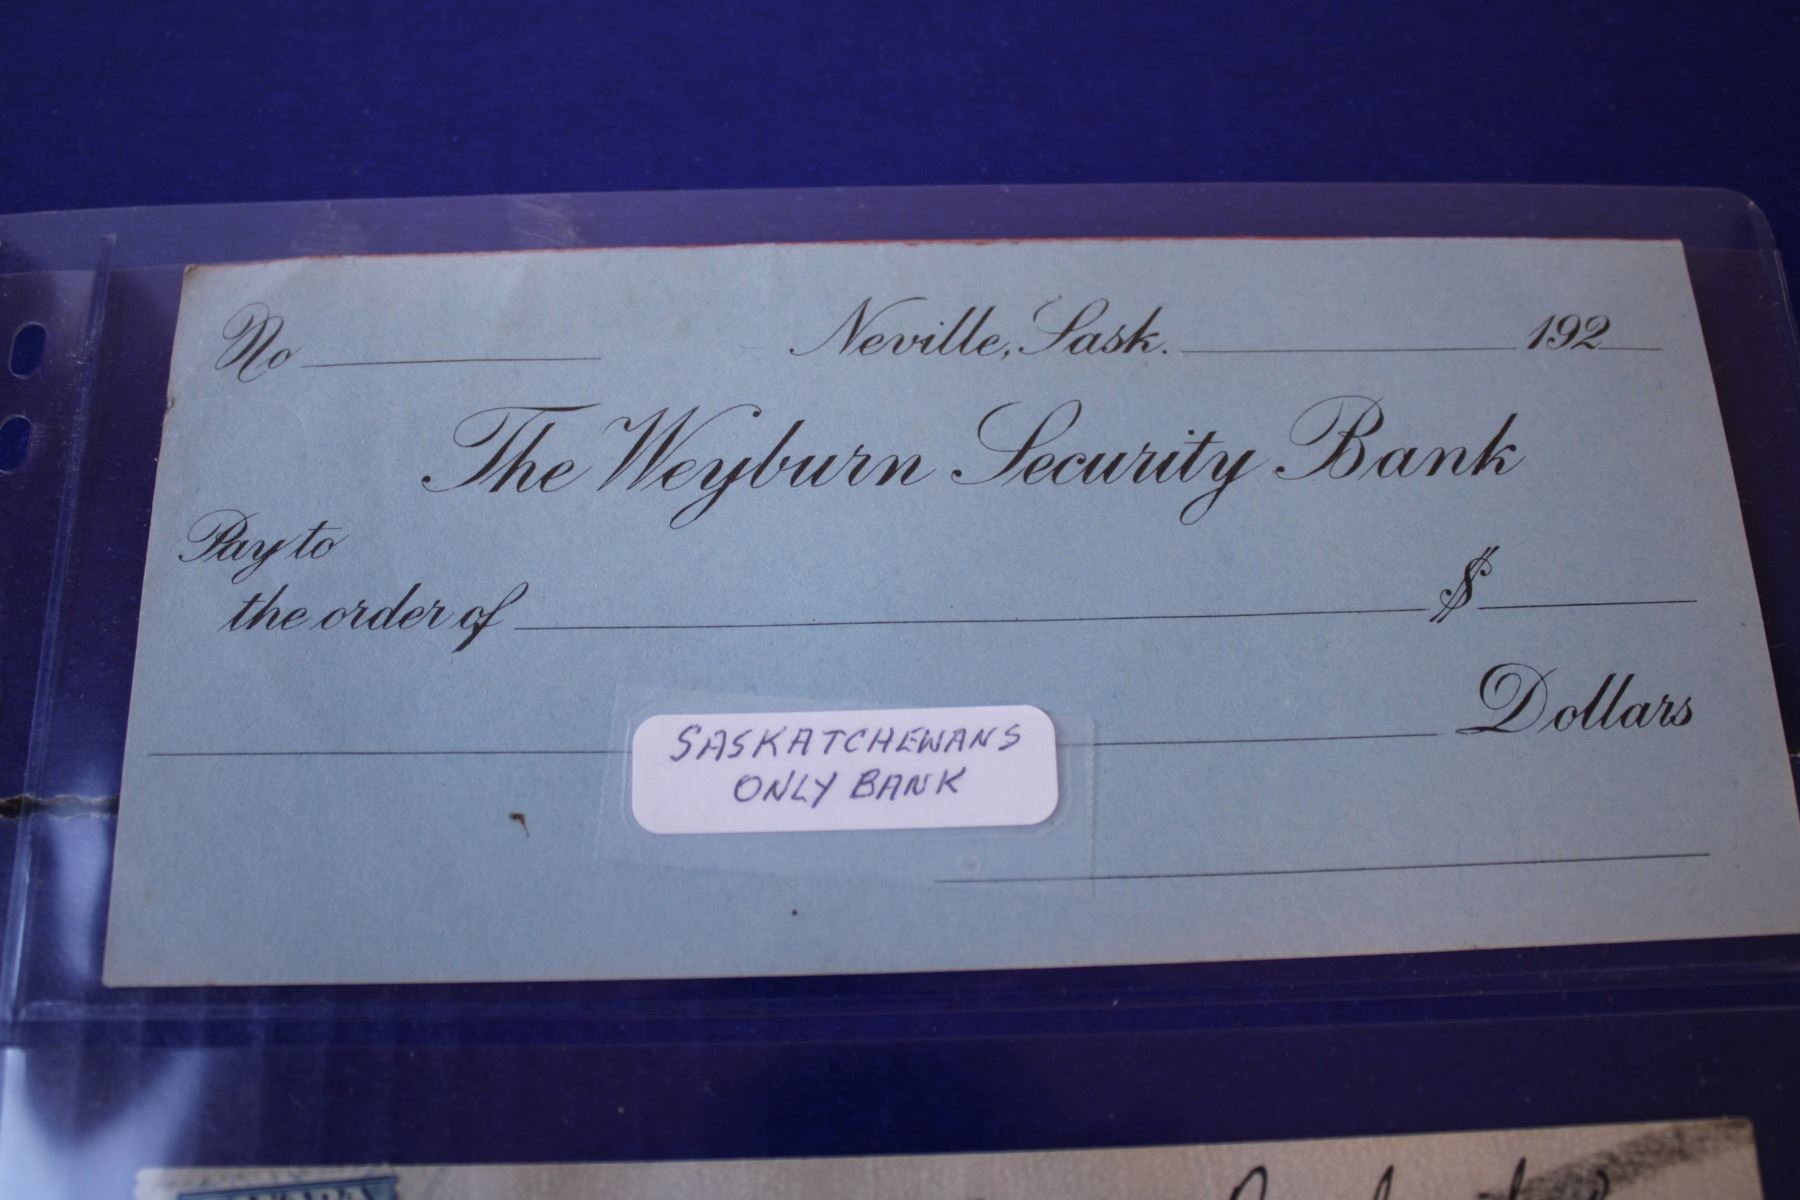 No Neville, Sask. 192
The Weyburn Security Bank
Pay to
the order of $
Dollars
SASKATCHEWANS
ONLY BANK